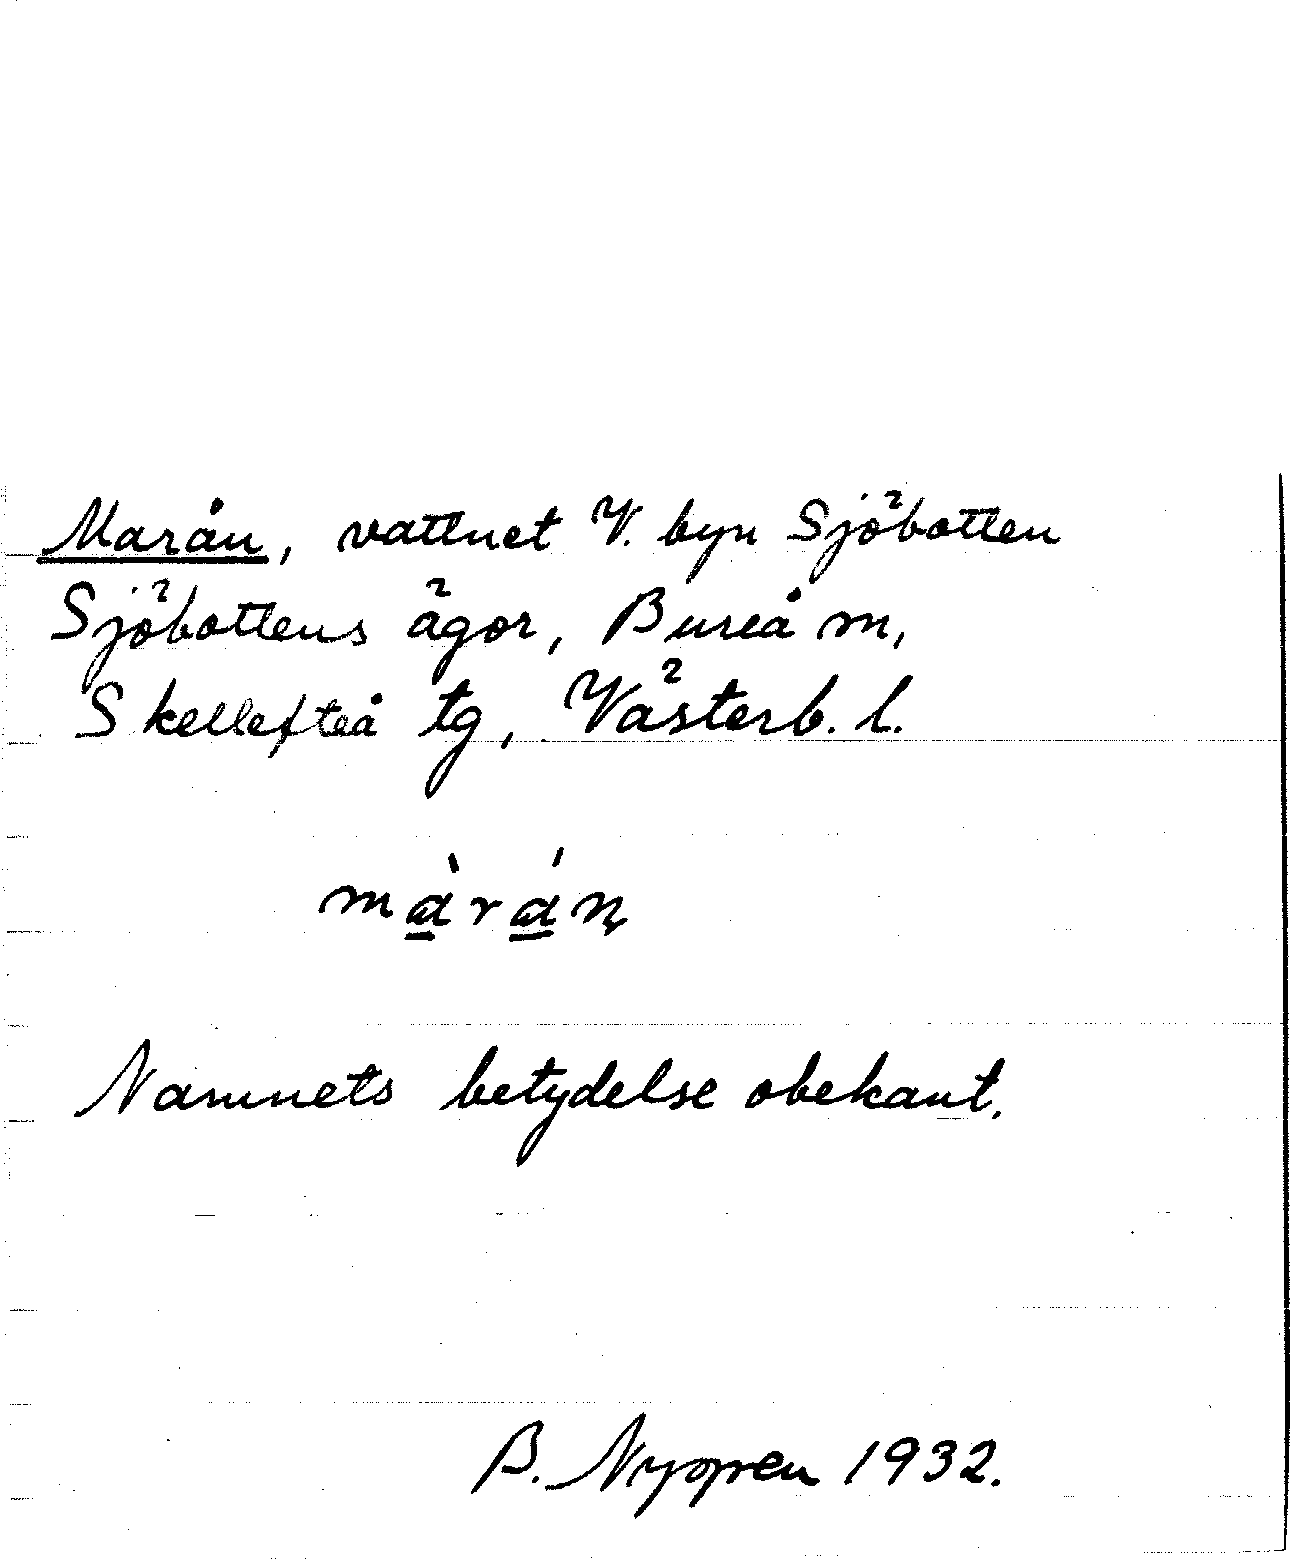 Marån, vattnet V. byn Sjöbotten
Sjöbottens ägor, Bureå m,
Skellefteå tg, Västerb. l.
mà̱rá̱n
Namnets betydelse obekant.
B. Nyopren 1932.